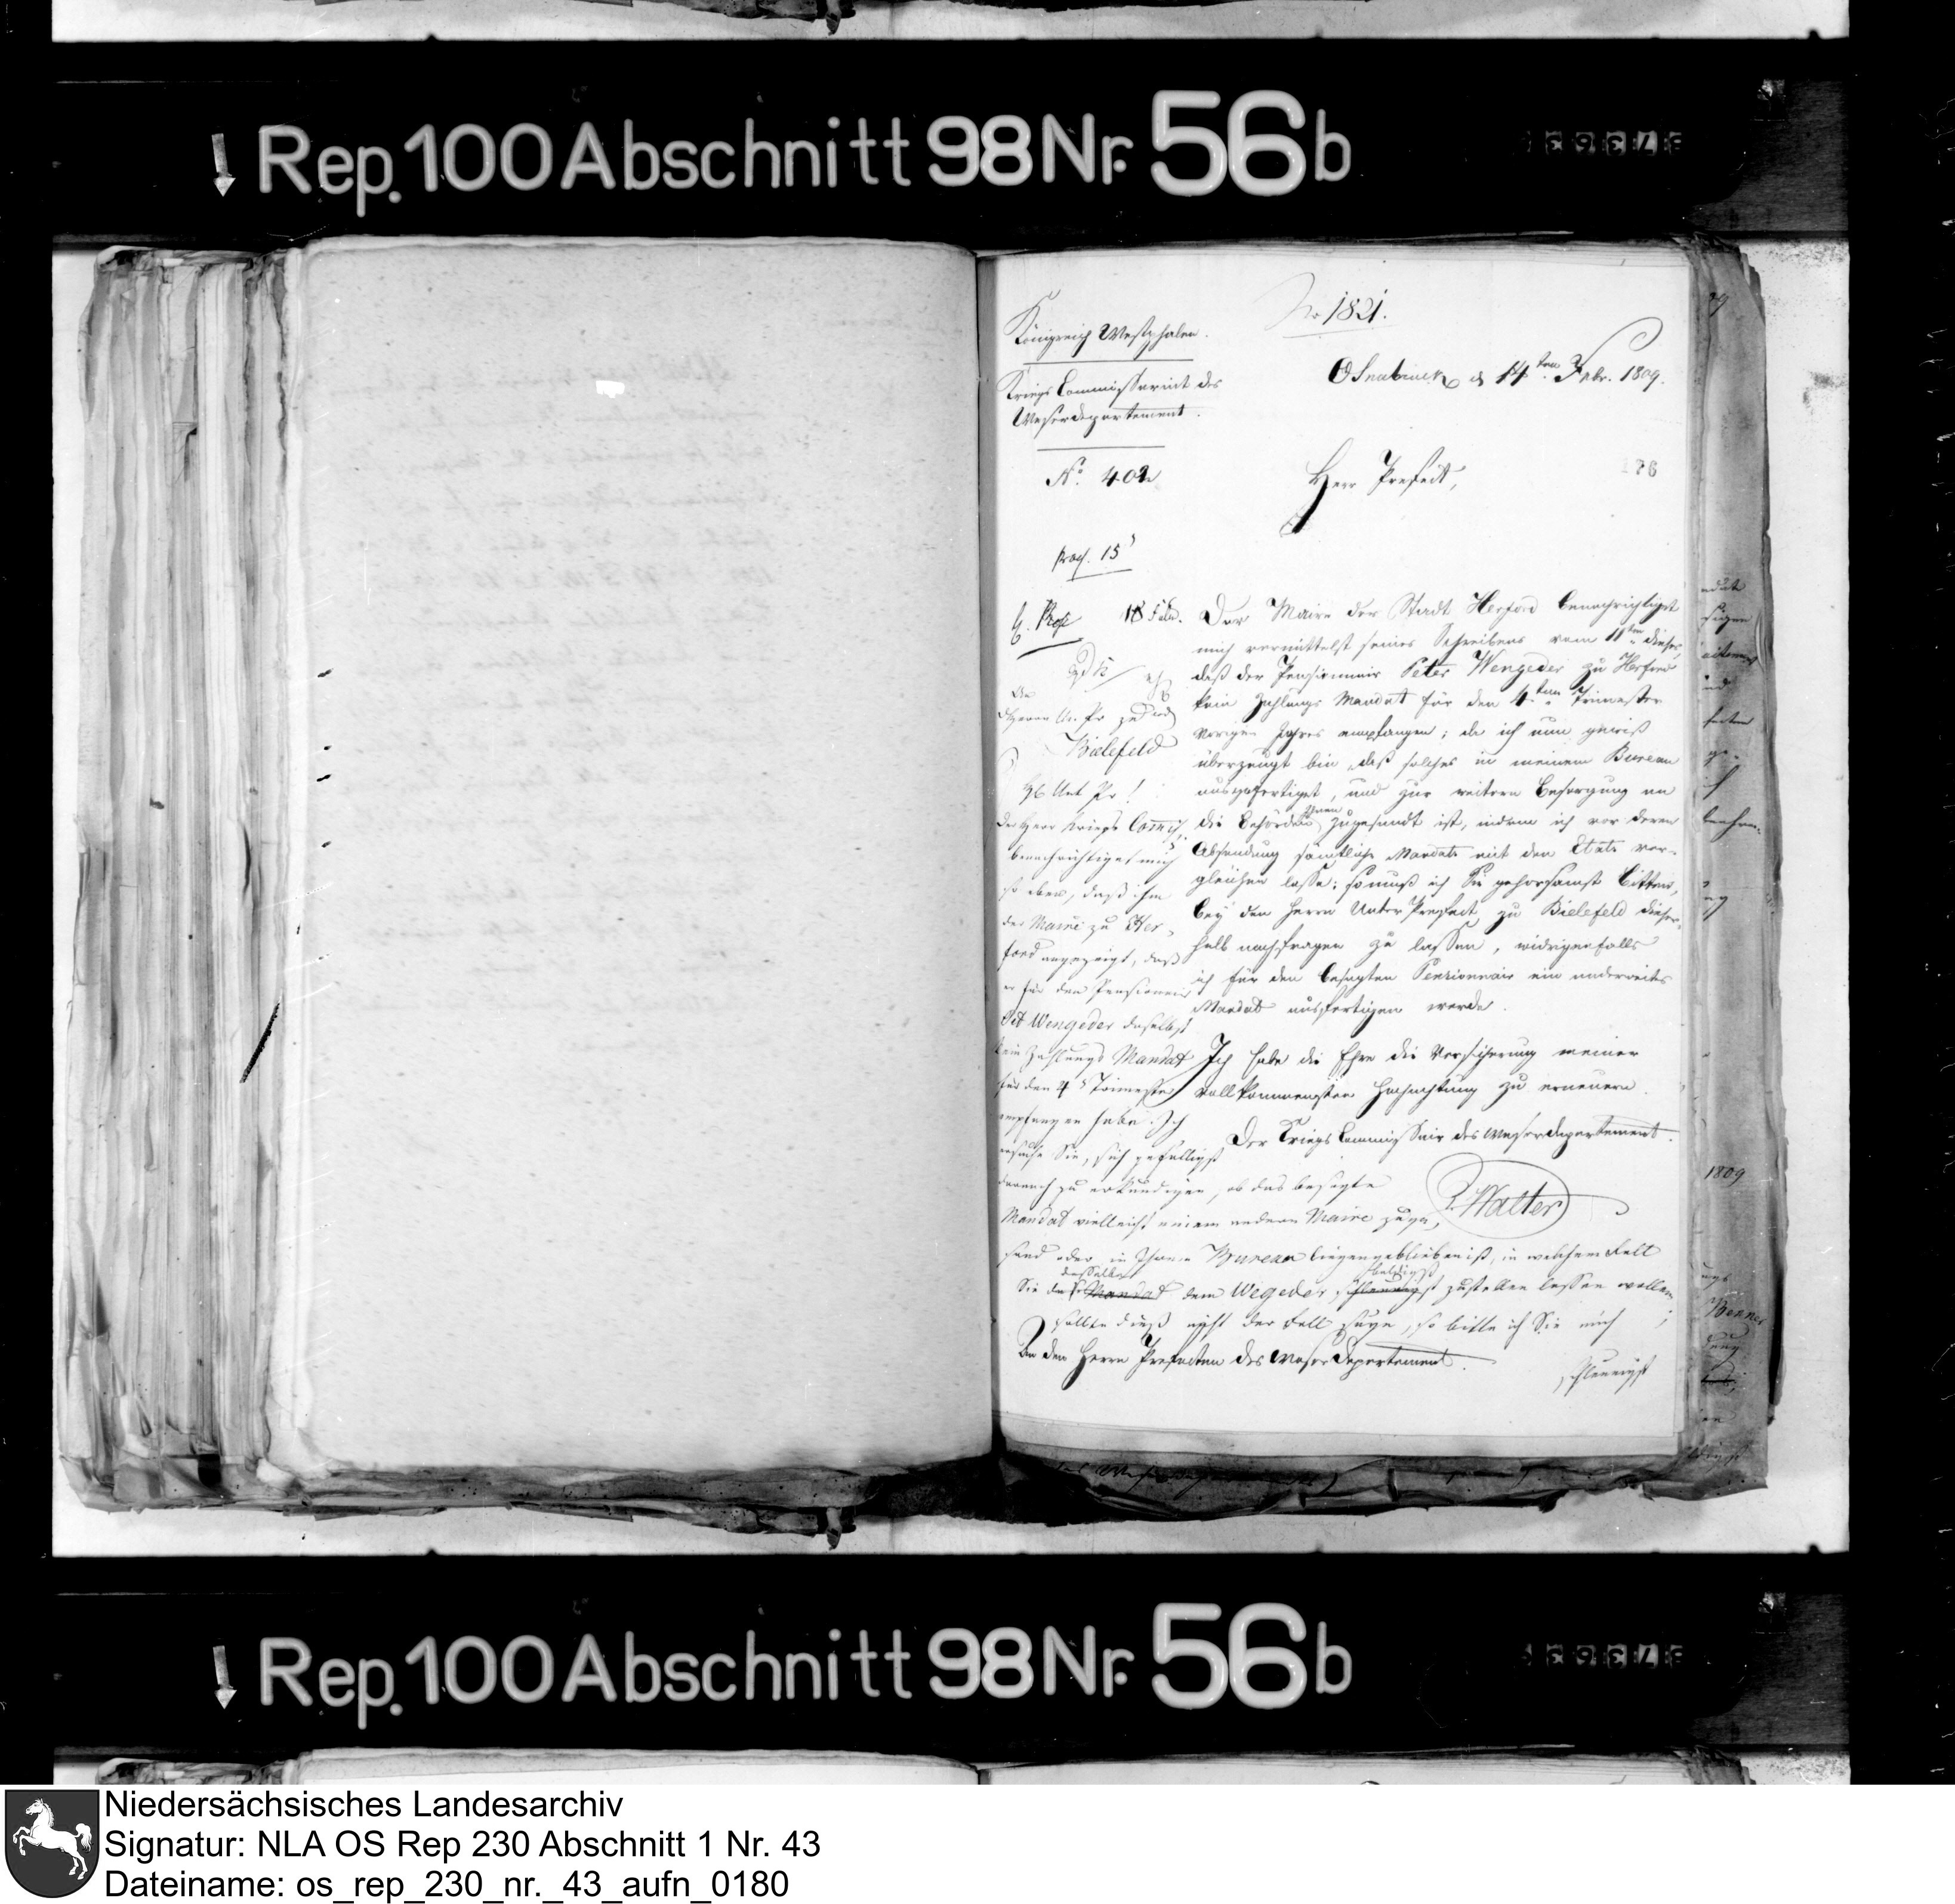 Rep. 100 Abschnitt 98 Nr. 56b
No 1821.
Königreich Westphalen.
Kriegs Commissariat des
Weserdepartement.
Osnabrück d 14ten Febr. 1809.
No. 402
Herr Prefect,
176
praes. 15
Der Maire der Stadt Herford benachrichtiget
mich vermittelst seines Schreibens vom 11ten dieses,
daß der Pensionnair Peter Wengeder zu Herford
kein Zahlungs Mandat für den 4ten Trimester
vorigen Jahres empfangen; da ich nun gewiß
überzeugt bin, daß solches in meinem Bureau
ausgefertiget, und zur weitern Besorgung an
die Behörden zugesandt ist, indem ich vor deren
Absendung sämtliche Mandate mit den Etats ver-
gleichen lasse; so muß ich Sie gehorsamst bitten,
bey den Herrn Unter Prefect zu Bielefeld dieser-
halb nachfragen zu lassen, widrigenfalls
ich für den besagten Pensionnair ein anderweites
Mandat ausfertigen werde.
Ich habe die Ehre die Versicherung meiner
vollkommensten Hochachtung zu erneuern.
Der Kriegs Commissair des Weserdepartement.
Walter
An den Herrn Prefecten des Weser Departement.
18 Febr.
An
Herrn U. Pr zu
Bielefeld
H. Unt Pr!
Der Herr Kriegs Commiss.
benachrichtiget mich
so eben, daß ihm
der Maire zu Her-
ford angezeigt, daß
er für den Pensionair
Pet Wengeder daselbst
kein Zahlungs Mandat
für den 4 Trimester
empfangen habe. Ich
ersuche Sie, sich gefälligst
darnach zu erkundigen, ob das besagte
Mandat vielleicht einem andern Maire zuge-
sand oder in Ihrem Bureau liegengeblieben ist, in welchem Fall
Sie dasselbe Mandat dem Wegeder schleunigst baldigst zustellen lassen wollen;
sollte dieß nicht der Fall seyn, so bitte ich Sie mich
schleunigst
1809
Rep. 100 Abschnitt 98 Nr. 56b
Niedersächsisches Landesarchiv
Signatur: NLA OS Rep 230 Abschnitt 1 Nr. 43
Dateiname: os_rep_230_nr._43_aufn_0180